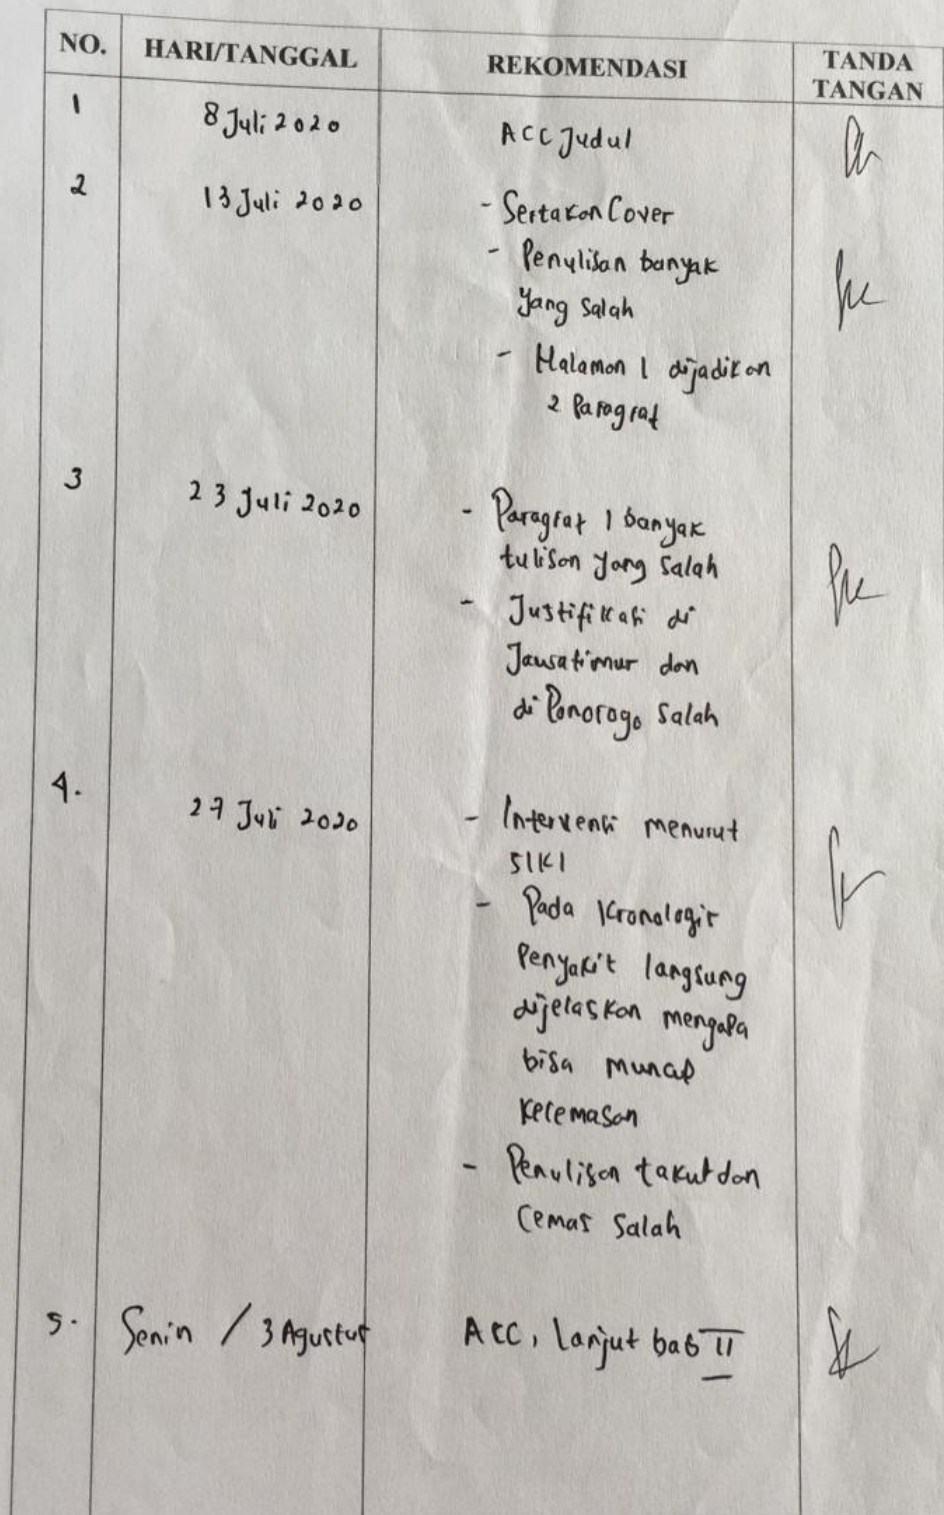 NO. HARI/TANGGAL REKOMENDASI TANDA TANGAN
1 8 Juli 2020 ACC Judul
2 13 Juli 2020 - Sertakan Cover
- Penulisan banyak
yang salah
- Halaman 1 dijadikan
2 Paragraf
3 23 Juli 2020 - Paragraf 1 banyak
tulisan yang salah
- Justifikasi di
Jawatimur dan
di Ponorogo salah
4. 27 Juli 2020 - Intervensi menurut
SIKI
- Pada Kronologis
Penyakit langsung
dijelaskan mengapa
bisa muncul
kecemasan
- Penulisan takut dan
cemas salah
5. Senin / 3 Agustus ACC, lanjut bab II